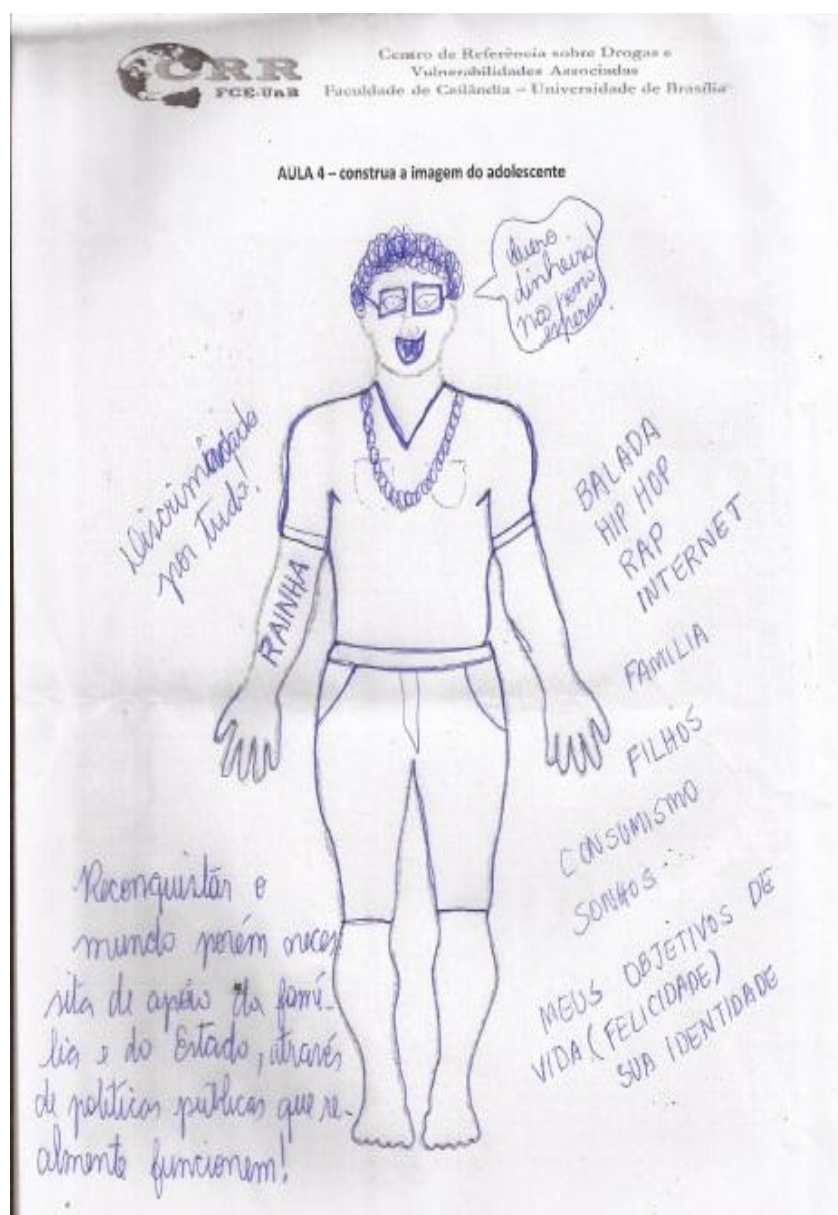 CRR
FCE-UnB
Centro de Referência sobre Drogas e
Vulnerabilidades Associadas
Faculdade de Ceilândia – Universidade de Brasília
AULA 4 – construa a imagem do adolescente
Quero
dinheiro
não posso
esperar
Discriminado
por tudo!
RAINHA
BALADA
HIP HOP
RAP
INTERNET
FAMILIA
FILHOS
CONSUMISMO
SONHOS...
MEUS OBJETIVOS DE
VIDA (FELICIDADE)
SUA IDENTIDADE
Reconquistar o
mundo porém neces
sita de apoio da famí-
lia e do Estado, através
de políticas públicas que re-
almente funcionem!